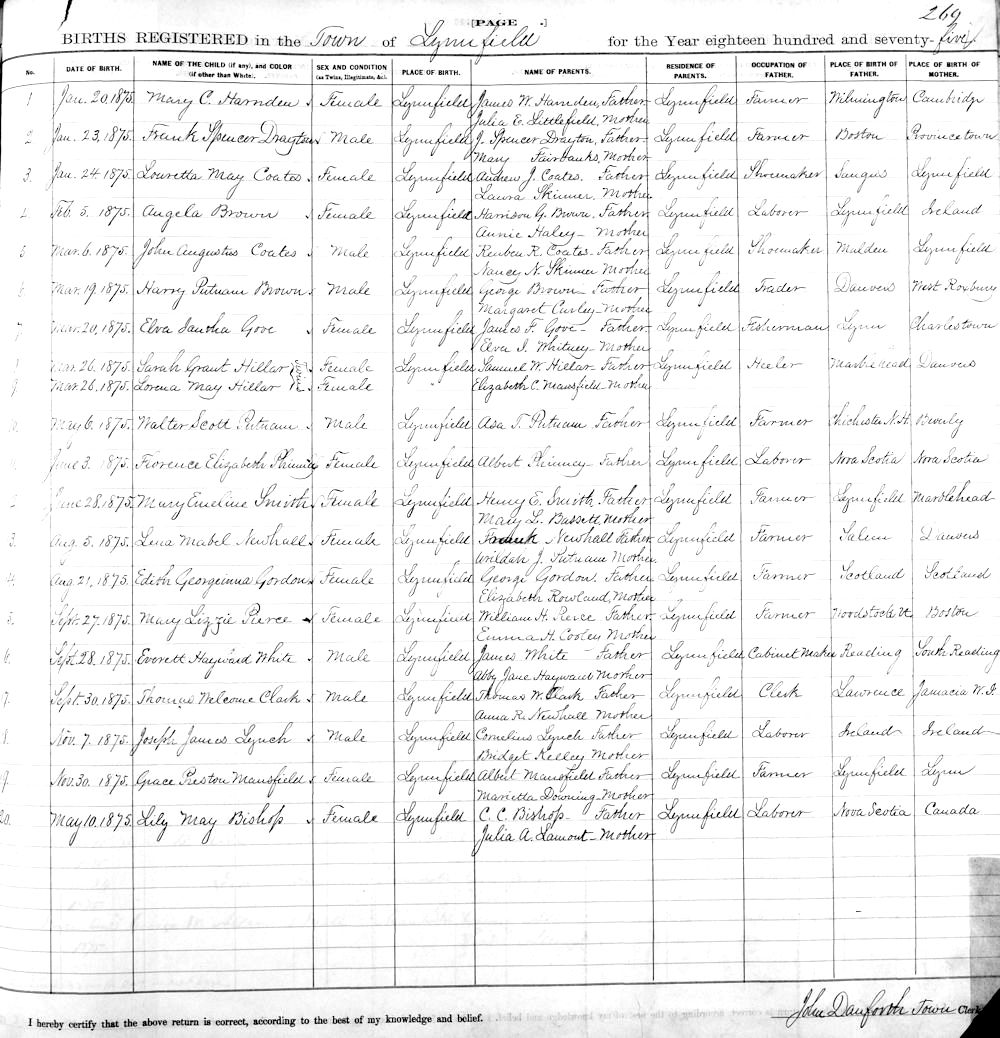 [PAGE .]
269
BIRTHS REGISTERED in the Town of Lynnfield for the Year eighteen hundred and seventy-five
No. DATE OF BIRTH. NAME OF THE CHILD (if any), and COLOR (if other than White). SEX AND CONDITION (as Twins, Illegitimate, &c.) PLACE OF BIRTH. NAME OF PARENTS. RESIDENCE OF PARENTS. OCCUPATION OF FATHER. PLACE OF BIRTH OF FATHER. PLACE OF BIRTH OF MOTHER.
1 Jan. 20, 1875. Mary C. Harnden Female Lynnfield James W. Harnden, Father Lynnfield Farmer Wilmington Cambridge
Julia E. Littlefield, Mother
2 Jan. 23, 1875. Frank Spencer Drayton Male Lynnfield J. Spencer Drayton, Father Lynnfield Farmer Boston Provincetown
Mary Fairbanks, Mother
3. Jan. 24 1875. Louretta May Coates Female Lynnfield Andrew J. Coates. Father Lynnfield Shoemaker Saugus Lynnfield
Laura Skinner Mother
4 Feb. 5. 1875. Angela Brown Female Lynnfield Harrison G. Brown, Father Lynnfield Laborer Lynnfield Ireland
Annie Haley - Mother
5 Mar. 6. 1875. John Augustus Coates Male Lynnfield Reuben R. Coates - Father Lynnfield Shoemaker Malden Lynnfield
Nancy N. Skinner Mother
6 Mar. 19. 1875. Harry Putnam Brown Male Lynnfield George Brown - Father Lynnfield Trader Danvers West Roxbury
Margaret Curley - Mother
7 Mar. 20, 1875. Elva Iantha Gove Female Lynnfield James F. Gove - Father Lynnfield Fisherman Lynn Charlestown
Elva I. Whitney - Mother
8 Mar. 26. 1875. Sarah Grant Hillar Twins Female Lynnfield Samuel W. Hillar - Father Lynnfield Heeler Marblehead Danvers
9 Mar. 26. 1875. Lorena May Hillar Female " Elizabeth C. Mansfield - Mother
10. May 6. 1875. Walter Scott Putnam Male Lynnfield Asa T. Putnam Father Lynnfield Farmer Chichester N.H. Beverly
June 3. 1875. Florence Elizabeth Phinney Female Lynnfield Albert Phinney - Father Lynnfield Laborer Nova Scotia Nova Scotia
June 28. 1875. Mary Emeline Smith Female Lynnfield Henry E. Smith Father Lynnfield Farmer Lynnfield Marblehead
Mary L. Bassett, Mother
3. Aug. 5. 1875. Lena Mabel Newhall Female Lynnfield Frank Newhall Father Lynnfield Farmer Salem Danvers
Wrildah J. Putnam Mother
4. Aug. 21, 1875. Edith Georgeinna Gordon Female Lynnfield George Gordon. Father Lynnfield Farmer Scotland Scotland
Elizabeth Rowland, Mother
5. Sept. 27. 1875. Mary Lizzie Pierce Female Lynnfield William H. Pierce Father Lynnfield Farmer Woodstock Vt Boston
Emma H. Cooley Mother
6. Sept. 28. 1875. Everett Hayward White Male Lynnfield James White - Father Lynnfield Cabinet Maker Reading South Reading
Abby Jane Hayward Mother
7. Sept. 30. 1875. Thomas Welcome Clark Male Lynnfield Thomas W. Clark Father Lynnfield Clerk Lawrence Jamacia W. I.
Anna R. Newhall Mother
8. Nov. 7. 1875. Joseph James Lynch Male Lynnfield Cornelius Lynch Father Lynnfield Laborer Ireland Ireland
Bridget Kelley Mother
9. Nov. 30. 1875. Grace Preston Mansfield Female Lynnfield Albert Mansfield Father Lynnfield Farmer Lynnfield Lynn
Marietta Downing - Mother
20. May 10. 1875. Lily May Bishop Female Lynnfield C. C. Bishop - Father Lynnfield Laborer Nova Scotia Canada
Julia A. Lamont - Mother
I hereby certify that the above return is correct, according to the best of my knowledge and belief.
John Danforth Town Clerk